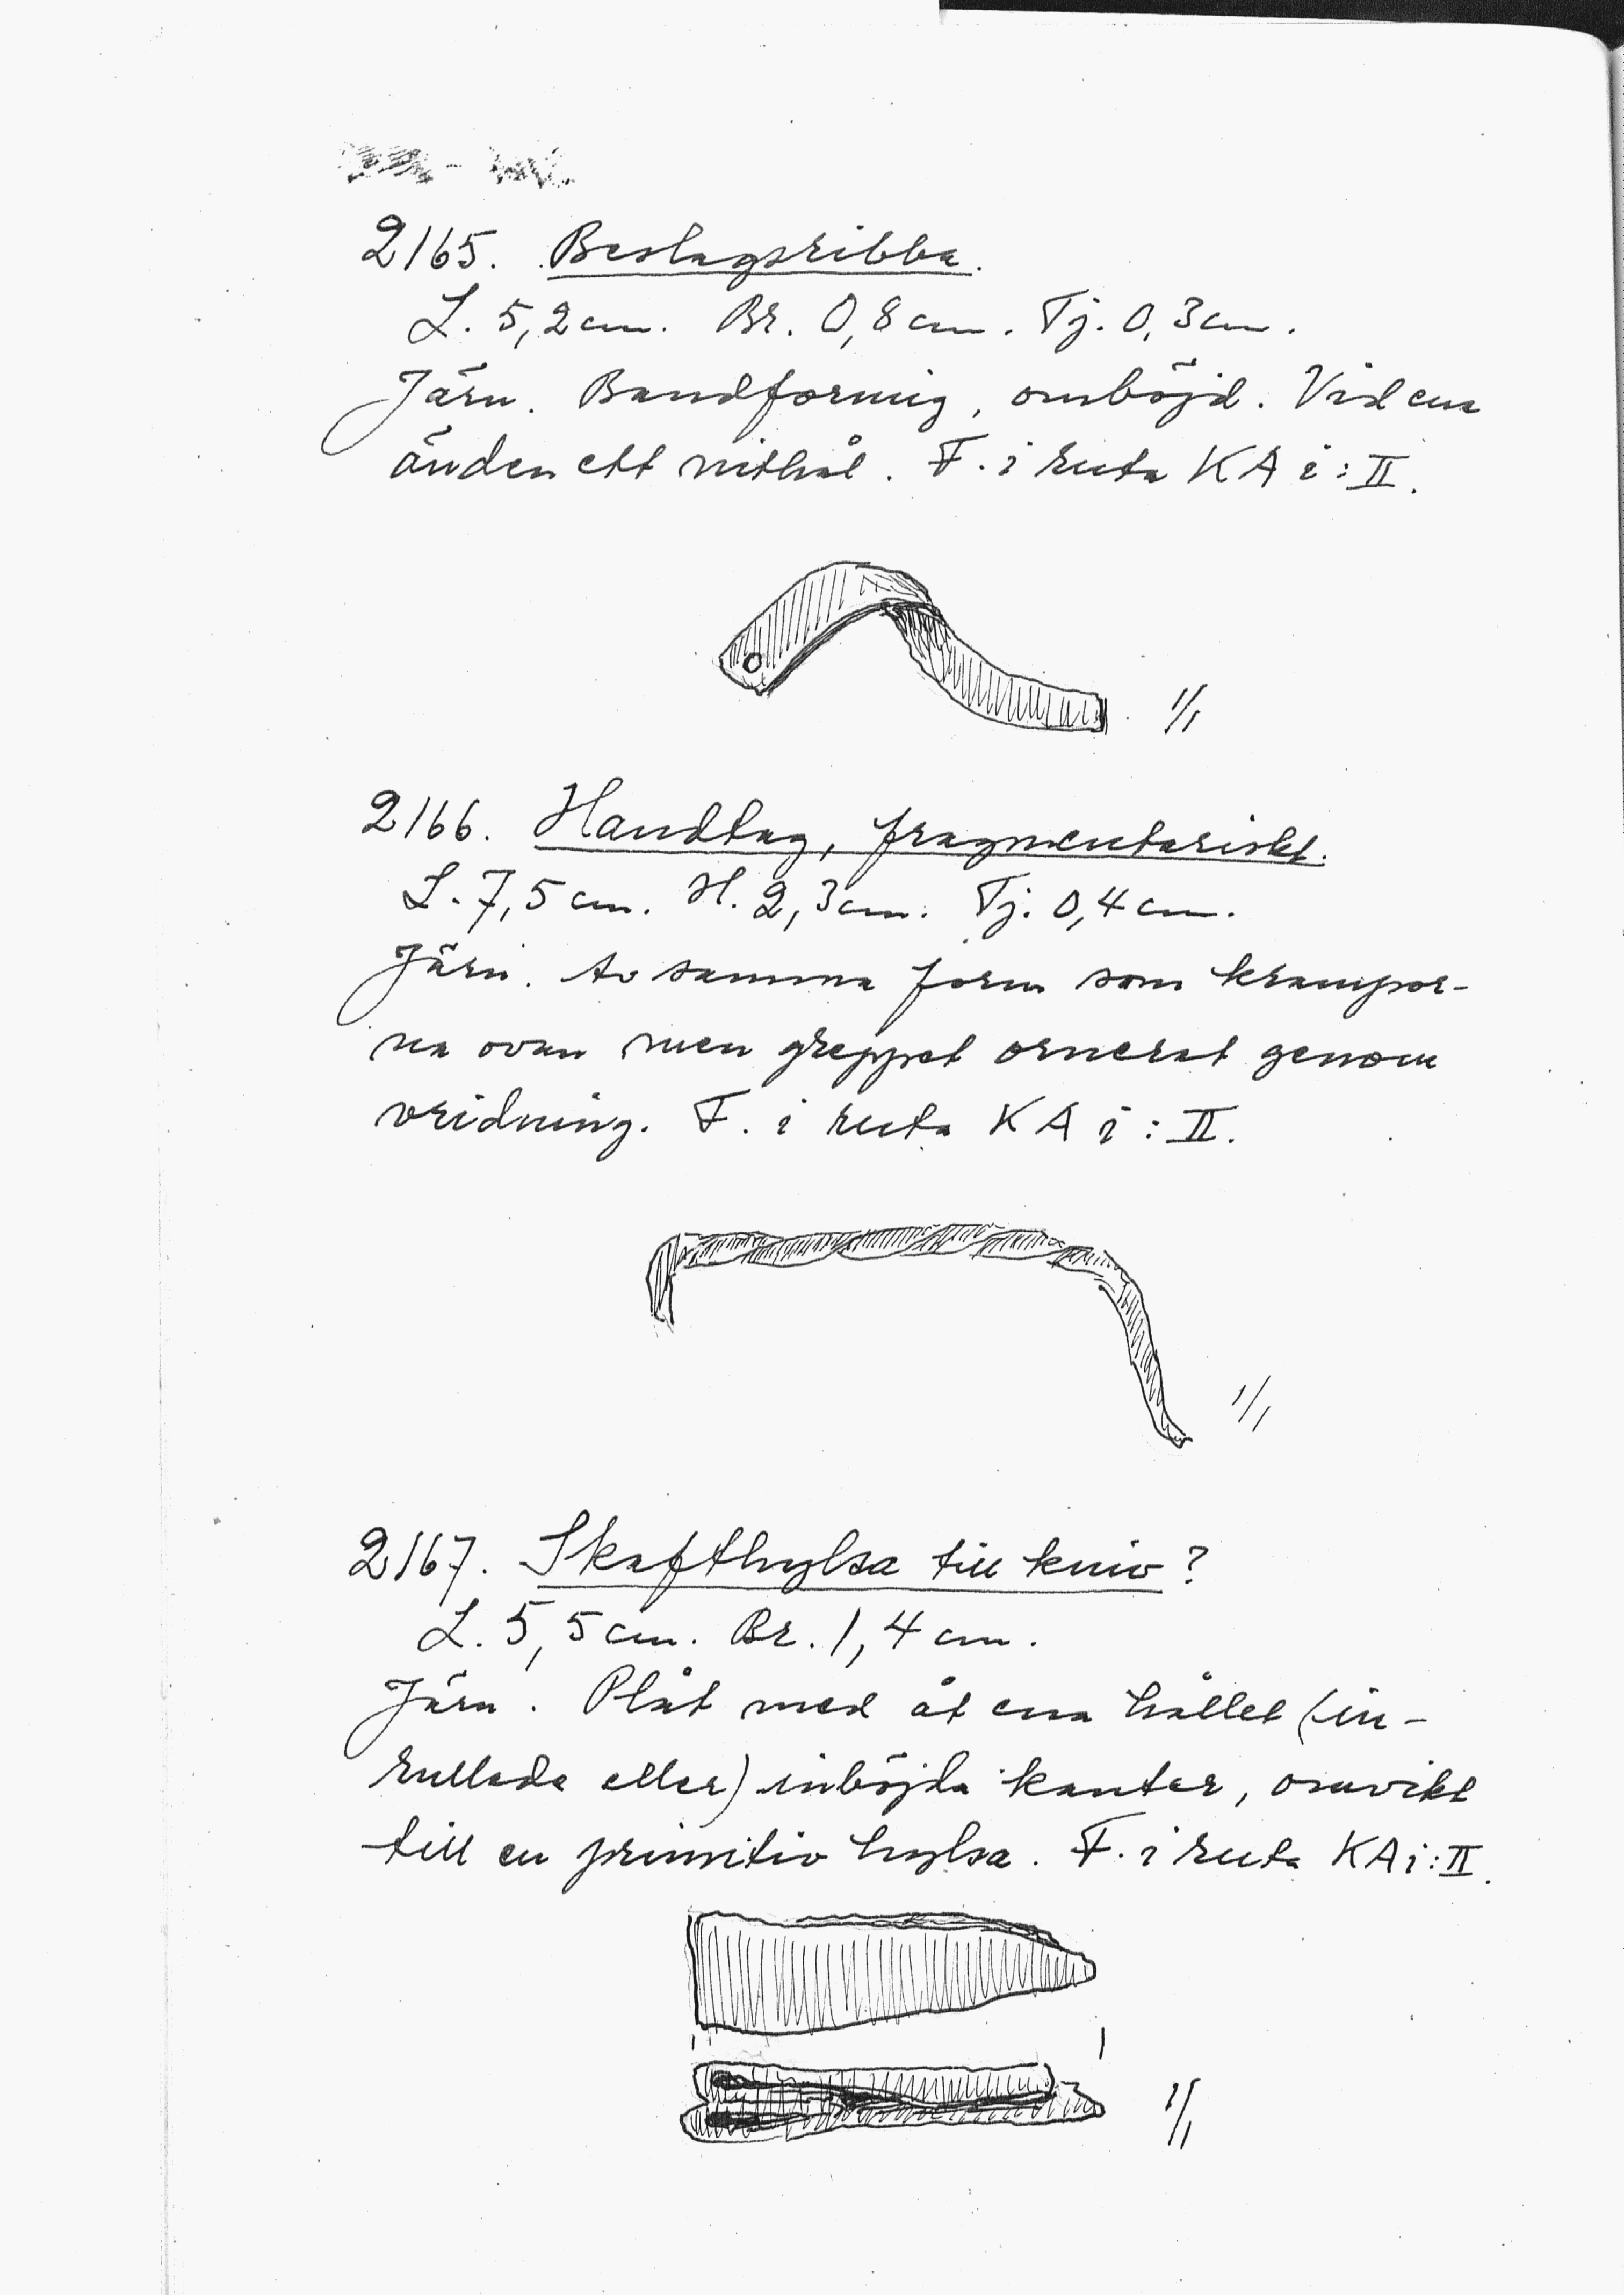 2165. Beslagsribba.
L. 5,2 cm. Br. 0,8 cm. Tj. 0,3 cm.
Järn. Bandformig, omböjd. Vid ena
änden ett nithål. F. i ruta KA i:II.
1/1
2166. Handtag, fragmentariskt.
L. 7,5 cm. H. 2,3 cm. Tj. 0,4 cm.
Järn. Av samma form som krampor-
na ovan men greppet ornerat genom
vridning. F. i ruta KA i:II.
1/1
2167. Skafthylsa till kniv?
L. 5,5 cm. Br. 1,4 cm.
Järn. Plåt med åt ena hållet (in-
rullade eller) inböjda kanter, omvikt
till en primitiv hylsa. F. i ruta KA i:II.
1/1